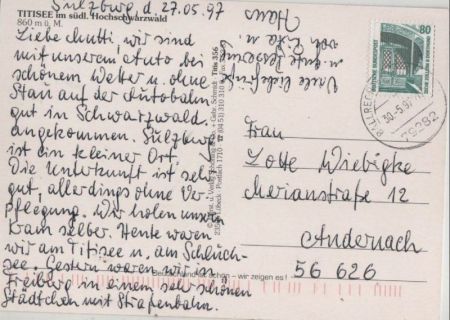 Sulzburg, d. 27.05.97
TITISEE im südl. Hochschwarzwald
860 m ü. M.
Liebe Mutti, wir sind
mit unserem Auto bei
schönem Wetter u. ohne
Stau auf der Autobahn
gut in Schwarzwald.
angekommen. Sulzburg
ist ein kleiner Ort,
Die Unterkunft ist sehr
gut, allerdings ohne Ver
pflegung. Wir holen unseren
Kram selber. Heute waren
wir am Titisee u. am Schluch-
see. Gestern waren wir in
Freiburg in einem sehr schönen
Städtchen mit Straßenbahn.
Viele liebe Grüße
von Rita u.
Hans
Titis 356
80
DEUTSCHE BUNDESPOST
30.-5.97
79282
Frau
Lotte Wiebigke
Merianstraße 12
Andernach
56 626
schön – wir zeigen es!